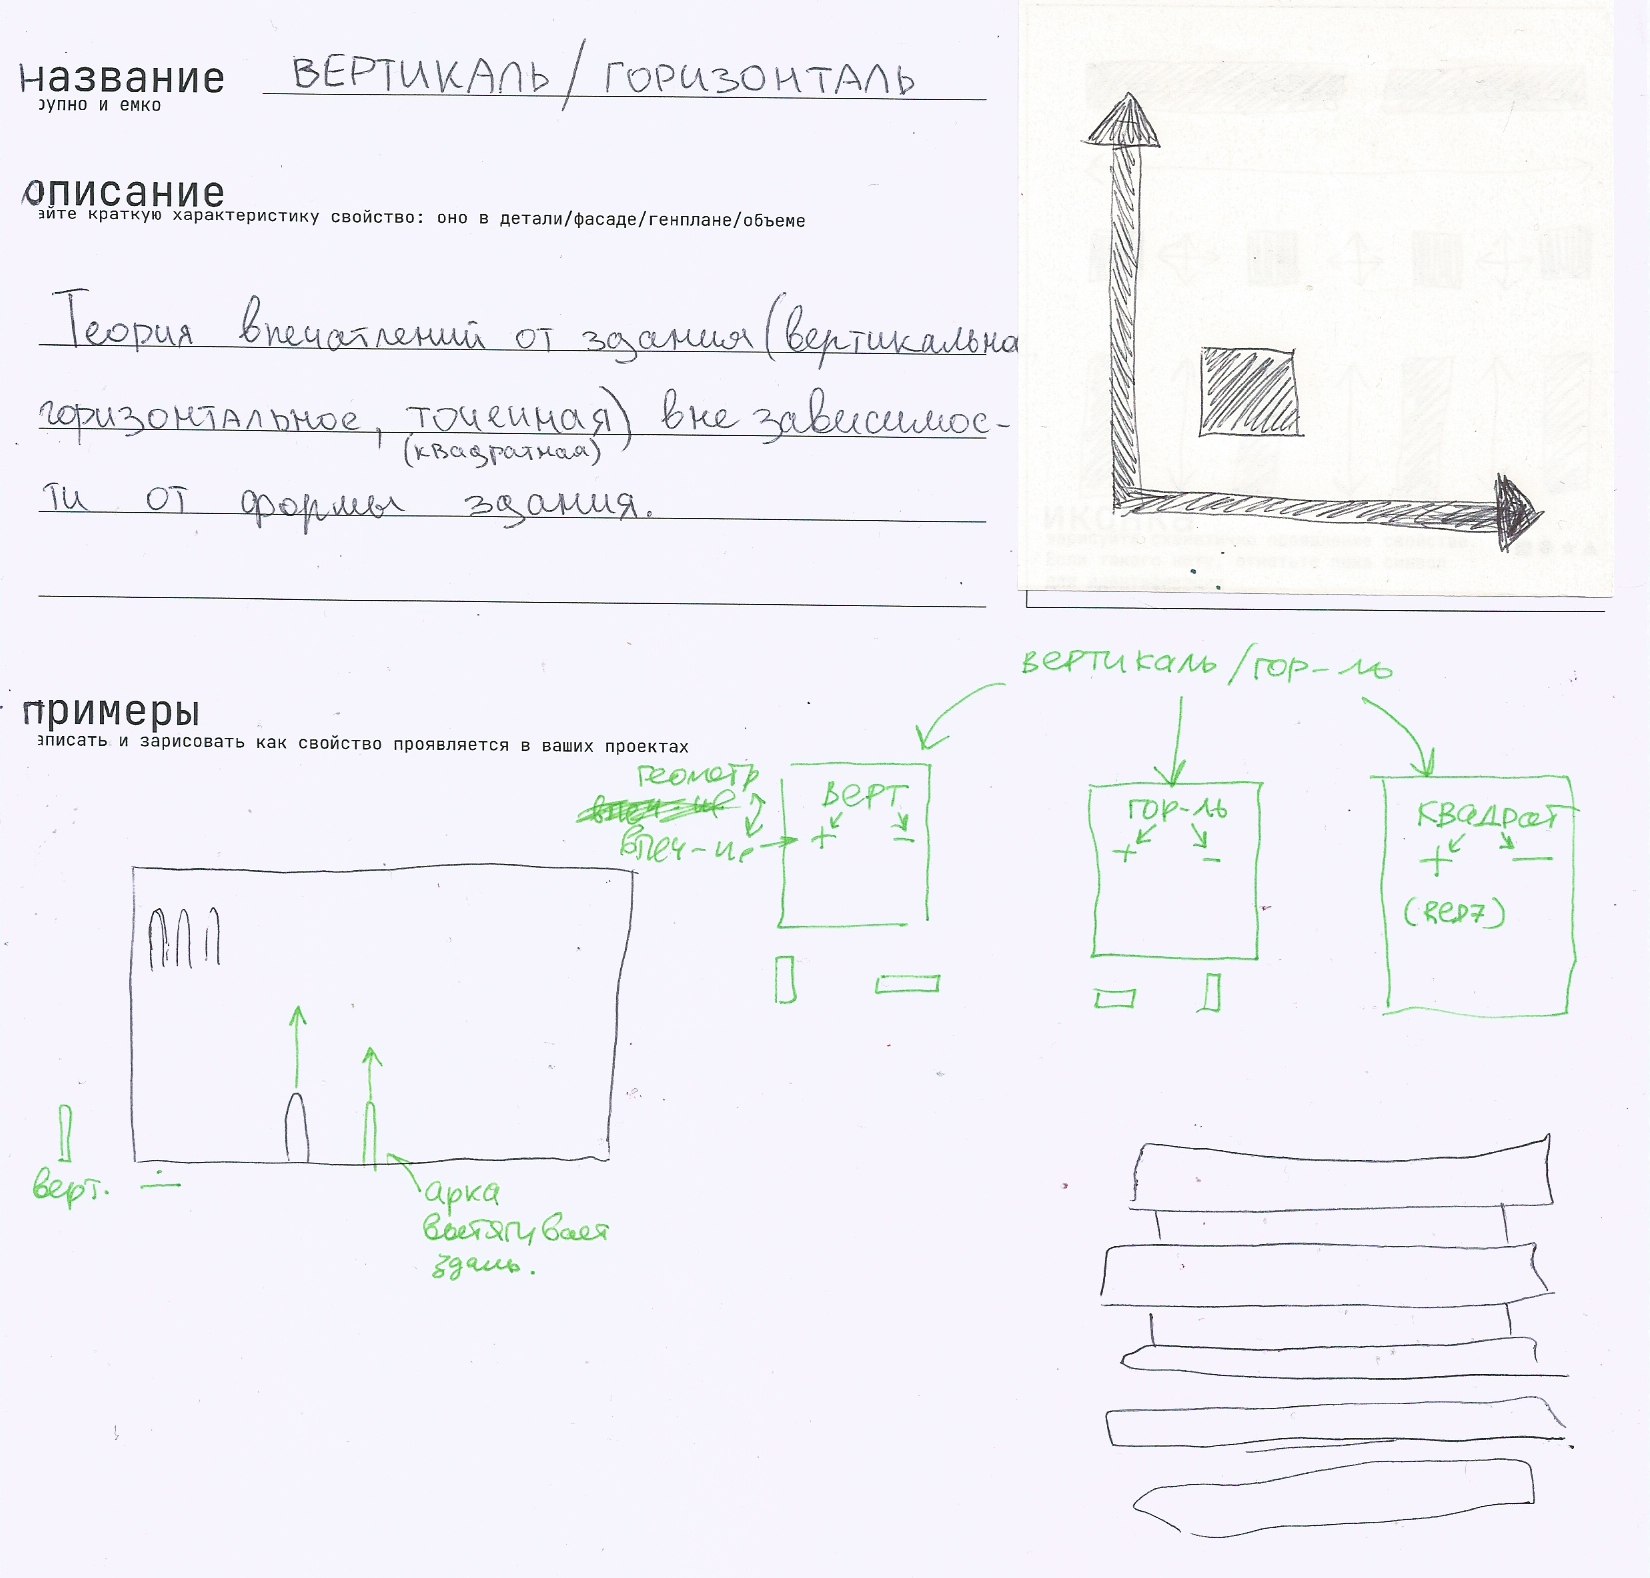 название ВЕРТИКАЛЬ/ГОРИЗОНТАЛЬ
рупно и емко
описание
айте краткую характеристику свойство: оно в детали/фасаде/генплане/объеме
Теория впечатлений от здания (вертикальна
горизонтальное, точечная) вне зависимос-
(квадратная)
ти от формы здания.
вертикаль/гор-ль
примеры
аписать и зарисовать как свойство проявляется в ваших проектах
геометр
впеч-ие
впеч-ие → + -
верт
гор-ль
+ -
квадрат
+ —
(верт)
верт.
арка
вытягивает
здань.